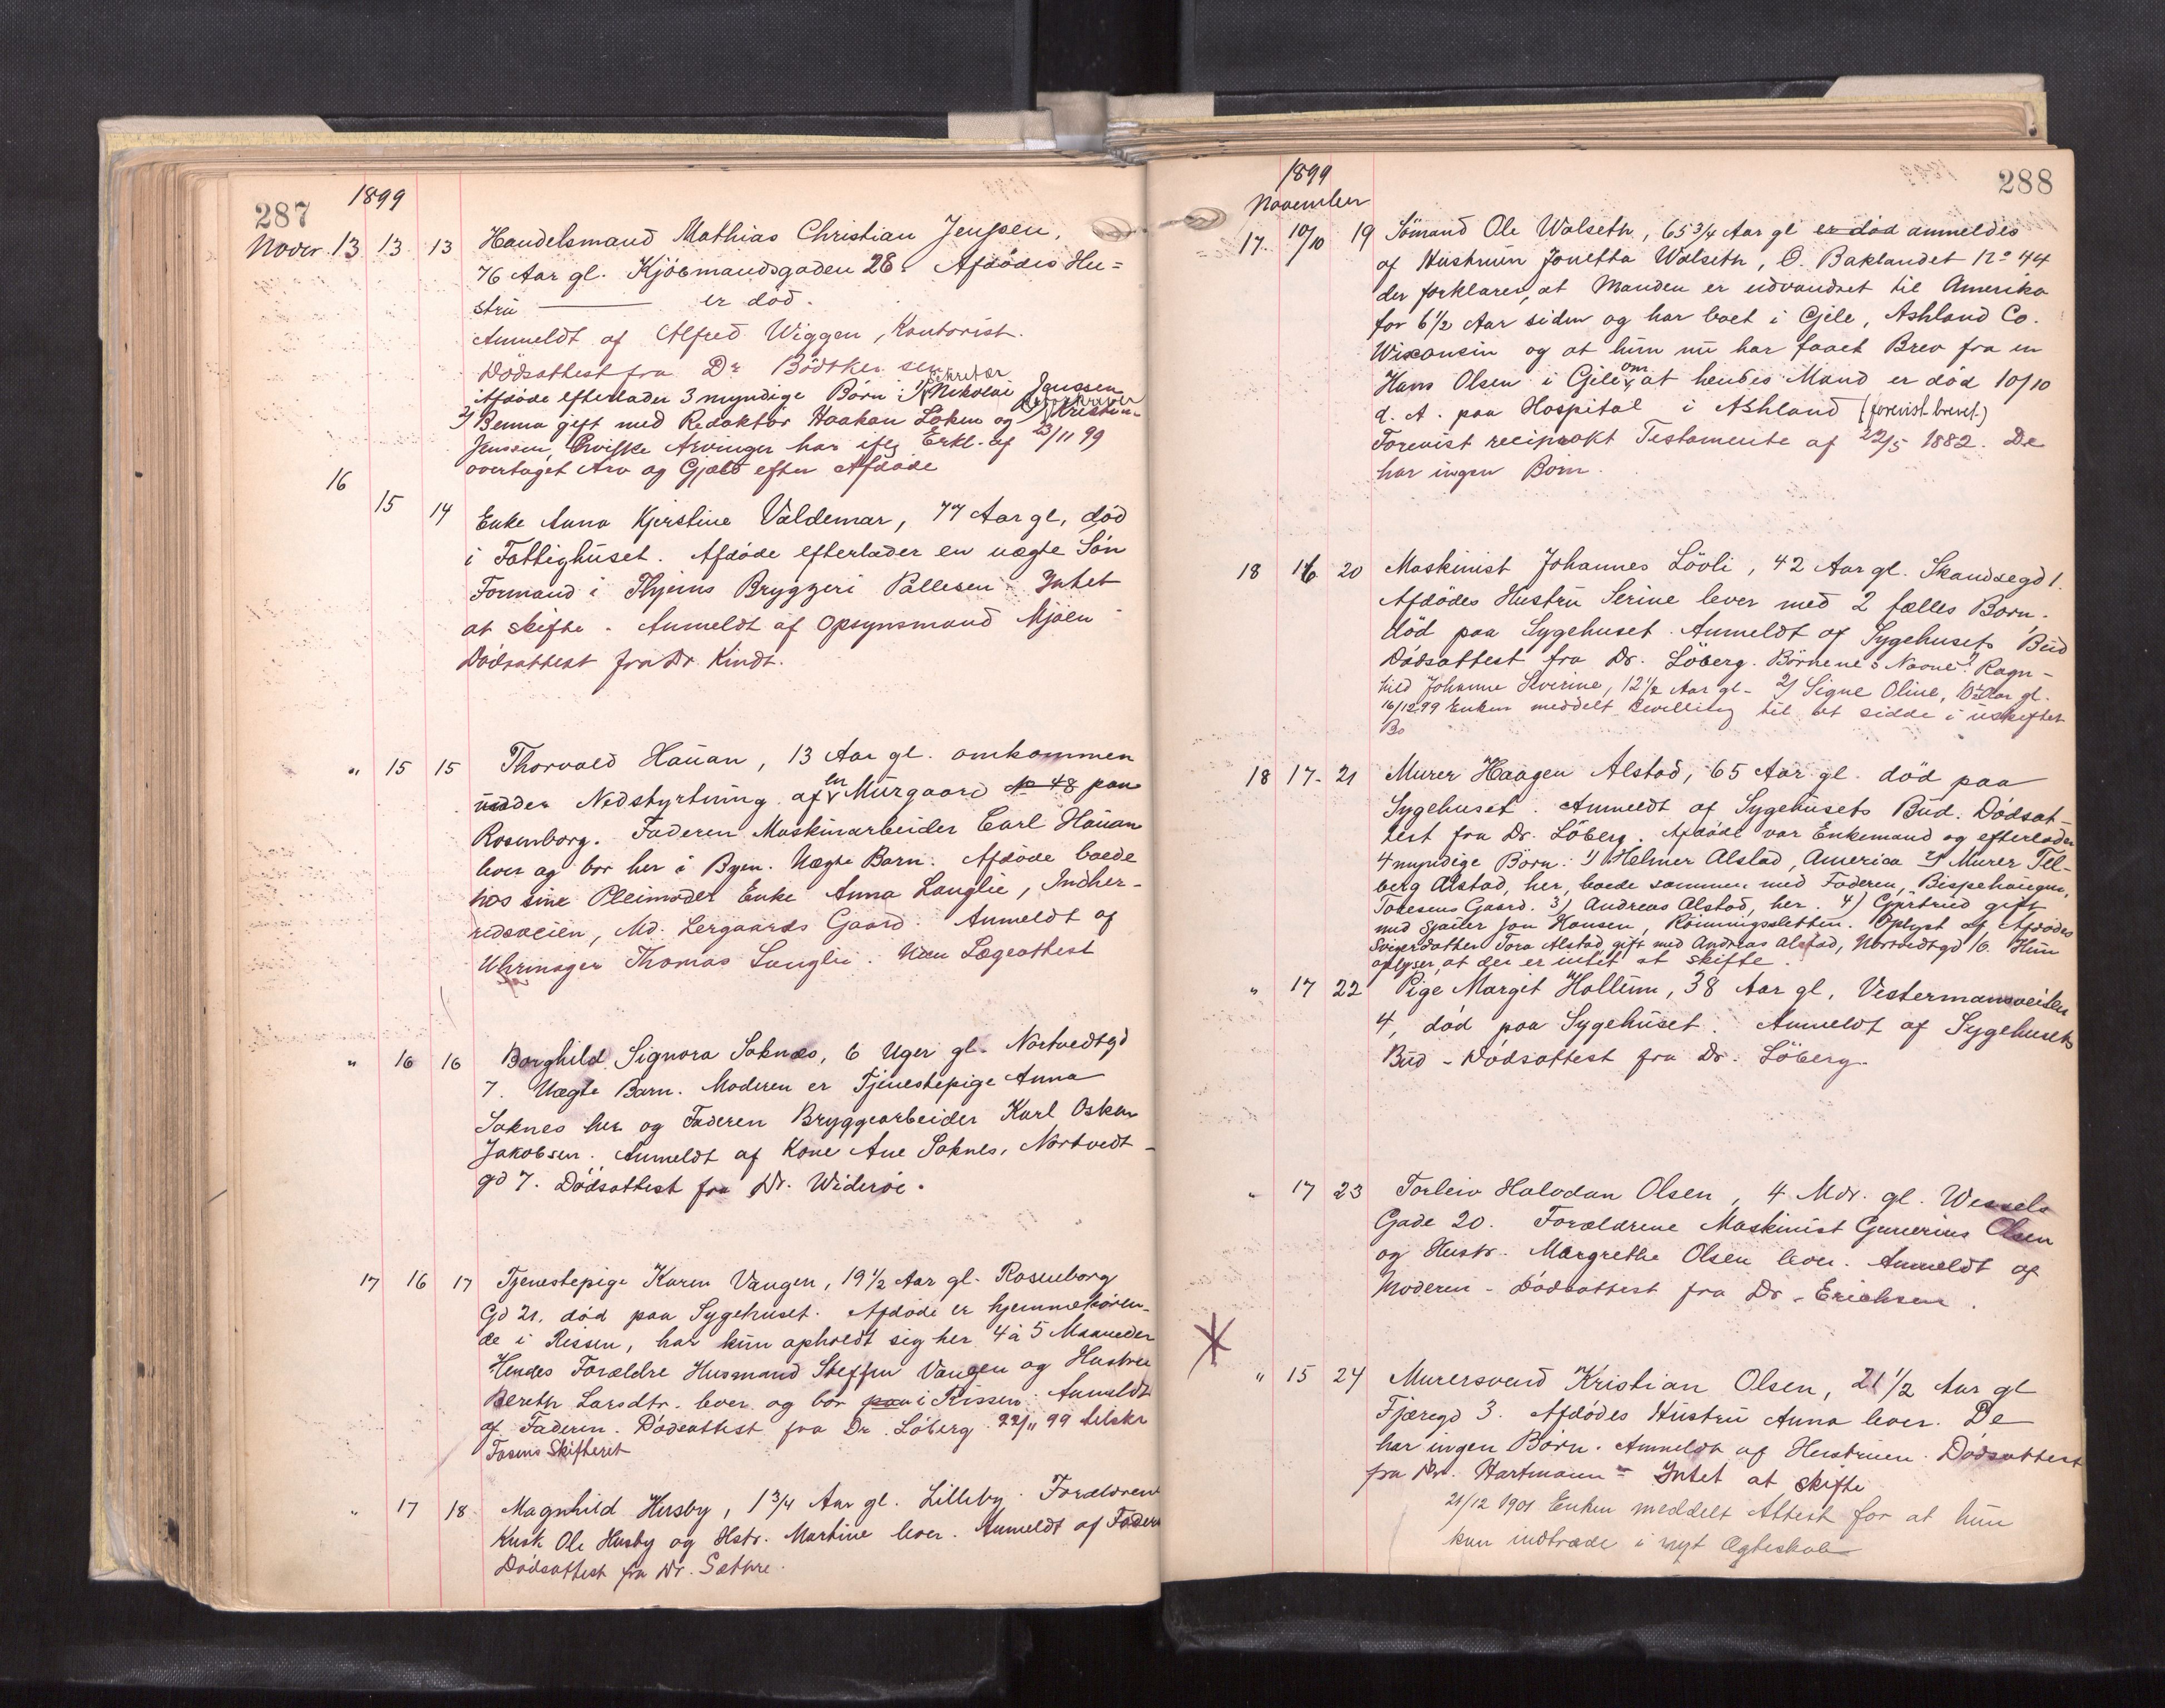 287
1899
Novbr 13 13 13 Handelsmand Mathias Christian Jenssen,
76 Aar gl. Kjøbmandsgaden 28. Afdødes Hu=
stru ——— er død.
Anmeldt af Alfred Wiggen, Kontorist.
Dødsattest fra Dr Bødtker sen
Afdøde efterlader 3 myndige Børn: 1) Sekretær Nikolai Jenssen
2) Benna gift med Redaktør Haakan Løken og 3) Kristin
Jenssen, hvilke Arvinger har iflg Erkl. af 23/11 99
overtaget Arv og Gjæld efter Afdøde
16 15 14 Enke Anna Kjerstine Valdemar, 77 Aar gl, død
i Fattighuset. Afdøde efterlader en uægte Søn
Formand i Thjems Bryggeri Pallesen. Intet
at skifte. Anmeldt af Opsynsmand Mjøen
Dødsattest fra Dr. Kindt.
" 15 15 Thorvald Hauan, 13 Aar gl. omkommen
under Nedstyrtning af en Murgaard No 48 paa
Rosenborg. Faderen Maskinarbeider Carl Hauan
lever og bor her i Byen. Uægte Barn. Afdøde boede
hos sine Pleimoder Enke Anna Langlie, Indher-
redsveien, Md. Lergaards Gaard. Anmeldt af
Uhrmager Thomas Langlie. Uden Lægeattest
" 16 16 Borghild Signora Soknæs, 6 Uger gl. Nortvedtgd
7. Uægte Barn. Moderen er Tjenestepige Anna
Soknes her og Faderen Bryggearbeider Karl Oskar
Jakobsen. Anmeldt af Kone Ane Soknes, Nortvedt-
gd 7. Dødsattest fra Dr. Widerøe.
17 16 17 Tjenestepige Karen Vangen, 19 1/2 Aar gl. Rosenborg
Gd 21, død paa Sygehuset. Afdøde er hjemmehøren-
de i Rissen, har kun opholdt sig her 4 à 5 Maaneder
Hendes Forældre Husmand Steffen Vangen og Hustru
Bereth Larsdtr. lever og bor paa i Rissen. Anmeldt
af Faderen. Dødsattest fra Dr. Løberg. 22/11 99 tilskr
Fosens Skifteret
" 17 18 Magnhild Husby, 1 3/4 Aar gl. Lilleby. Forældrene
Kusk Ole Husby og Hstr. Martine lever. Anmeldt af Faderen
Dødsattest fra Dr. Sæthre.
288
1899
November
17. 10/10 19 Sømand Ole Walseth, 65 3/4 Aar gl er død anmeldes
af Hustruen Jonetta Walseth, Ø. Baklandet No 44
der forklarer, at Manden er udvandret til Amerika
for 6 1/2 Aar siden og har boet i Gjele, Ashland Co.
Wisconsin og at hun nu har faaet Brev fra en
Hans Olsen i Gjele, om at hendes Mand er død 10/10
d. A. paa Hospital i Ashland (forevist brevet.)
Forevist reciprokt Testamente af 22/5 1882. De
har ingen Børn.
18 16 20 Maskinist Johannes Løvli, 42 Aar gl. Skandsegd 1.
Afdødes Hustru Serine lever med 2 fælles Børn.
død paa Sygehuset. Anmeldt af Sygehusets Bud
Dødsattest fra Dr. Løberg. Børnenes Navne: 1) Ragn-
hild Johanne Severine, 12 1/2 Aar gl - 2) Signe Oline, Aar gl.
16/12 99 Enken meddelt Bevilling til at sidde i uskiftet
Bo
18 17 21 Murer Haagen Alstad, 65 Aar gl. død paa
Sygehuset. Anmeldt af Sygehusets Bud. Dødsat-
test fra Dr. Løberg. Afdøde var Enkemand og efterlader
4 myndige Børn: 1) Helmer Alstad, America 2) Murer Til-
berg Alstad, her, boede sammen med Faderen, Bispehaugen,
Toresens Gaard. 3) Andreas Alstad, her. 4) Gjertrud gift
med Sjauer Jon Hansen, Rønningsletten. Oplyst af Afdødes
Svigerdatter Tora Alstad gift med Andreas Alstad, Nortvedtgd 16. Hun
oplyser, at der er intet at skifte.
" 17 22 Pige Margit Hollum, 38 Aar gl, Vestermansveiten
4, død paa Sygehuset. Anmeldt af Sygehusets
Bud - Dødsattest fra Dr. Løberg.
" 17 23 Torleiv Halvdan Olsen, 4 Mdr. gl. Wessels
Gade 20. Forældrene Maskinist Gunerius Olsen
og Hustr. Margrethe Olsen lever. Anmeldt af
Moderen - Dødsattest fra Dr. Erichsen.
" 15 24 Murersvend Kristian Olsen, 21 1/2 Aar gl
Fjæregd 3. Afdødes Hustru Anna lever. De
har ingen Børn. Anmeldt af Hustruen. Dødsattest
fra Dr. Hartmann - Intet at skifte
21/12 1901 Enken meddelt Attest for at hun
kan indtræde i nyt Ægteskab